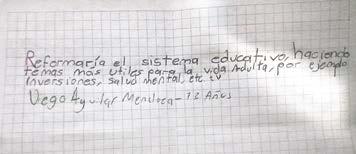 Reformaría el sistema educativo, haciendo
temas más utiles para la vida Adulta, por ejemplo
inversiones, salud mental, etc.
Aguilar Mendoza - 12 Años